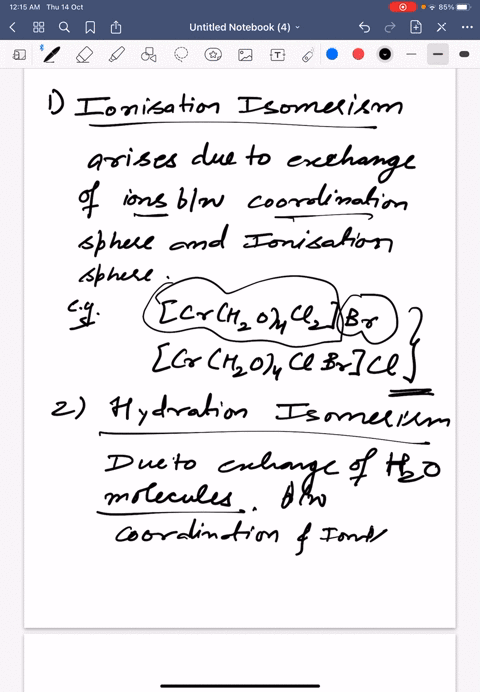 12:15 AM Thu 14 Oct
85%
Untitled Notebook (4)
1) Ionisation Isomerism
arises due to exchange
of ions b/w coordination
sphere and Ionisation
sphere.
e.g.
[Cr(H2O)4Cl2]Br
[Cr(H2O)4ClBr]Cl
2) Hydration Isomerism
Due to exchange of H2O
molecules. b/w
coordination &